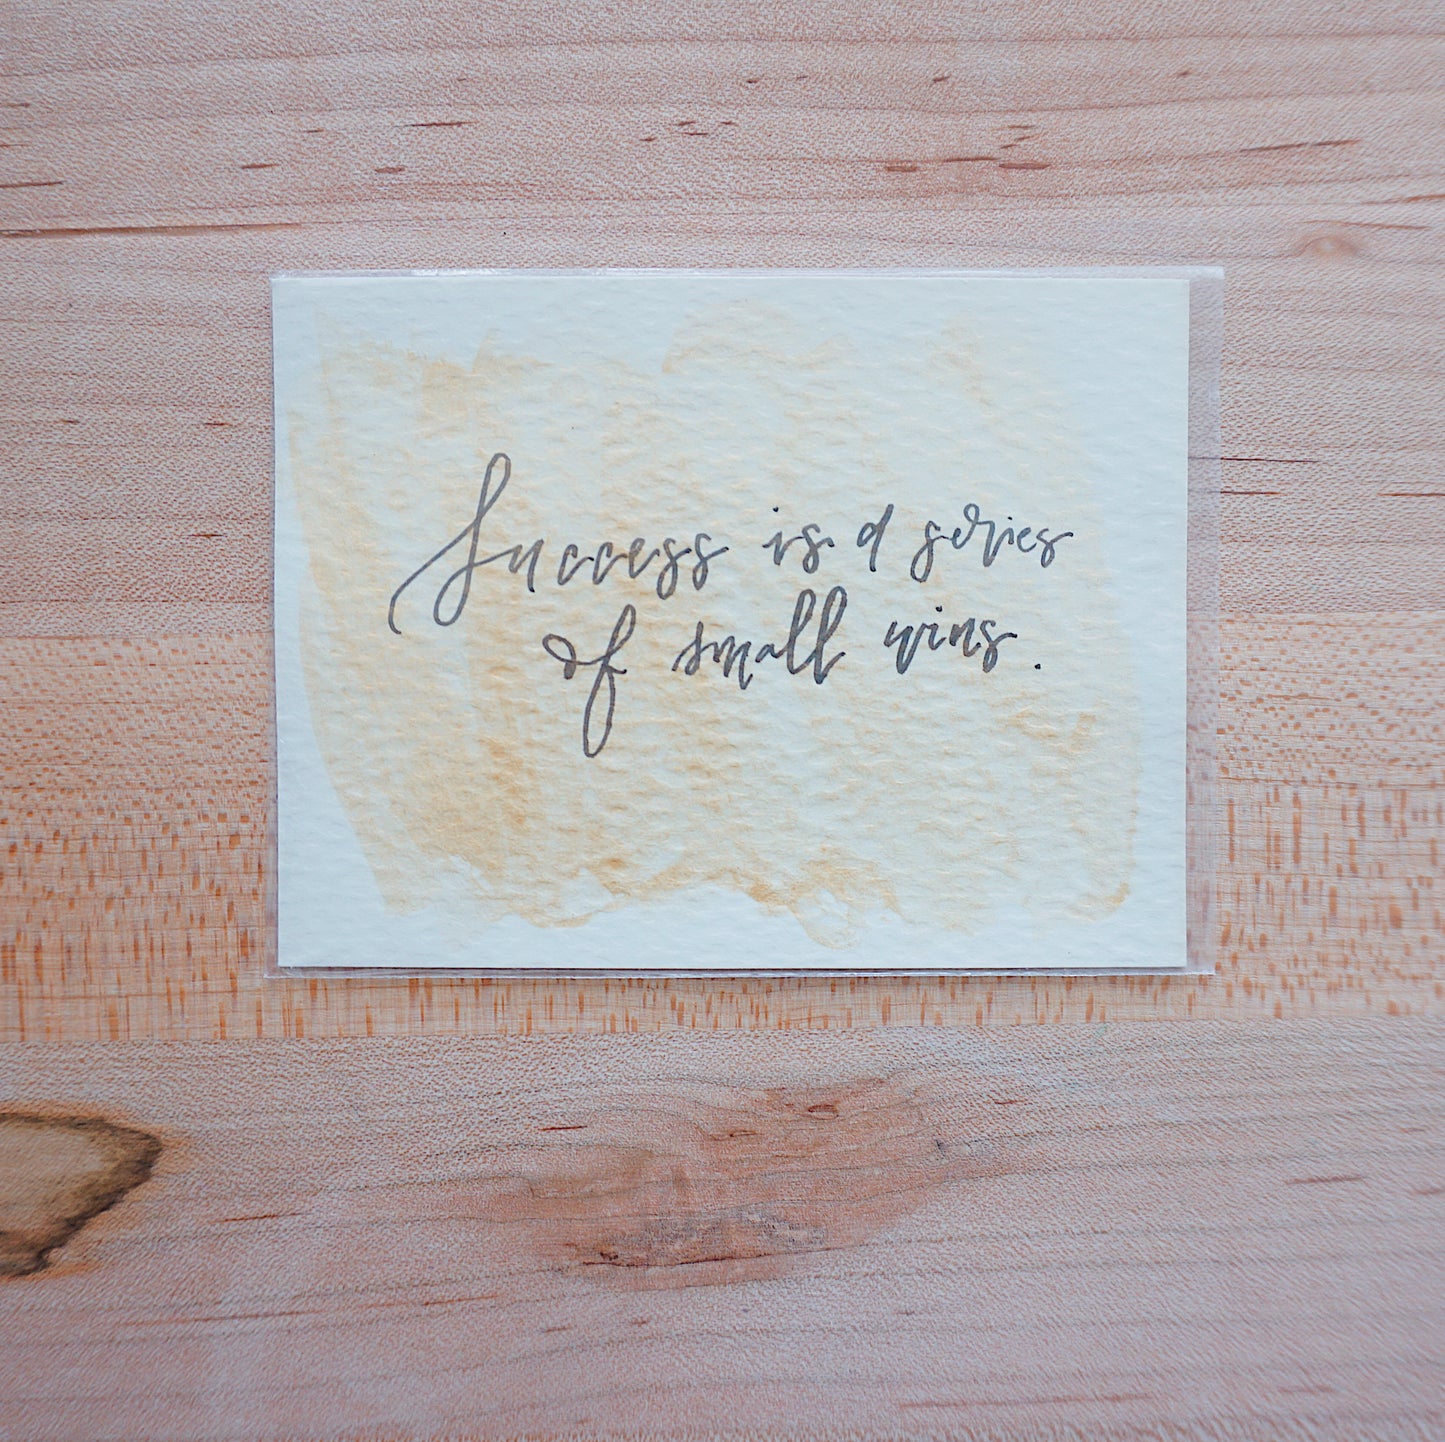 Success is a series
of small wins.